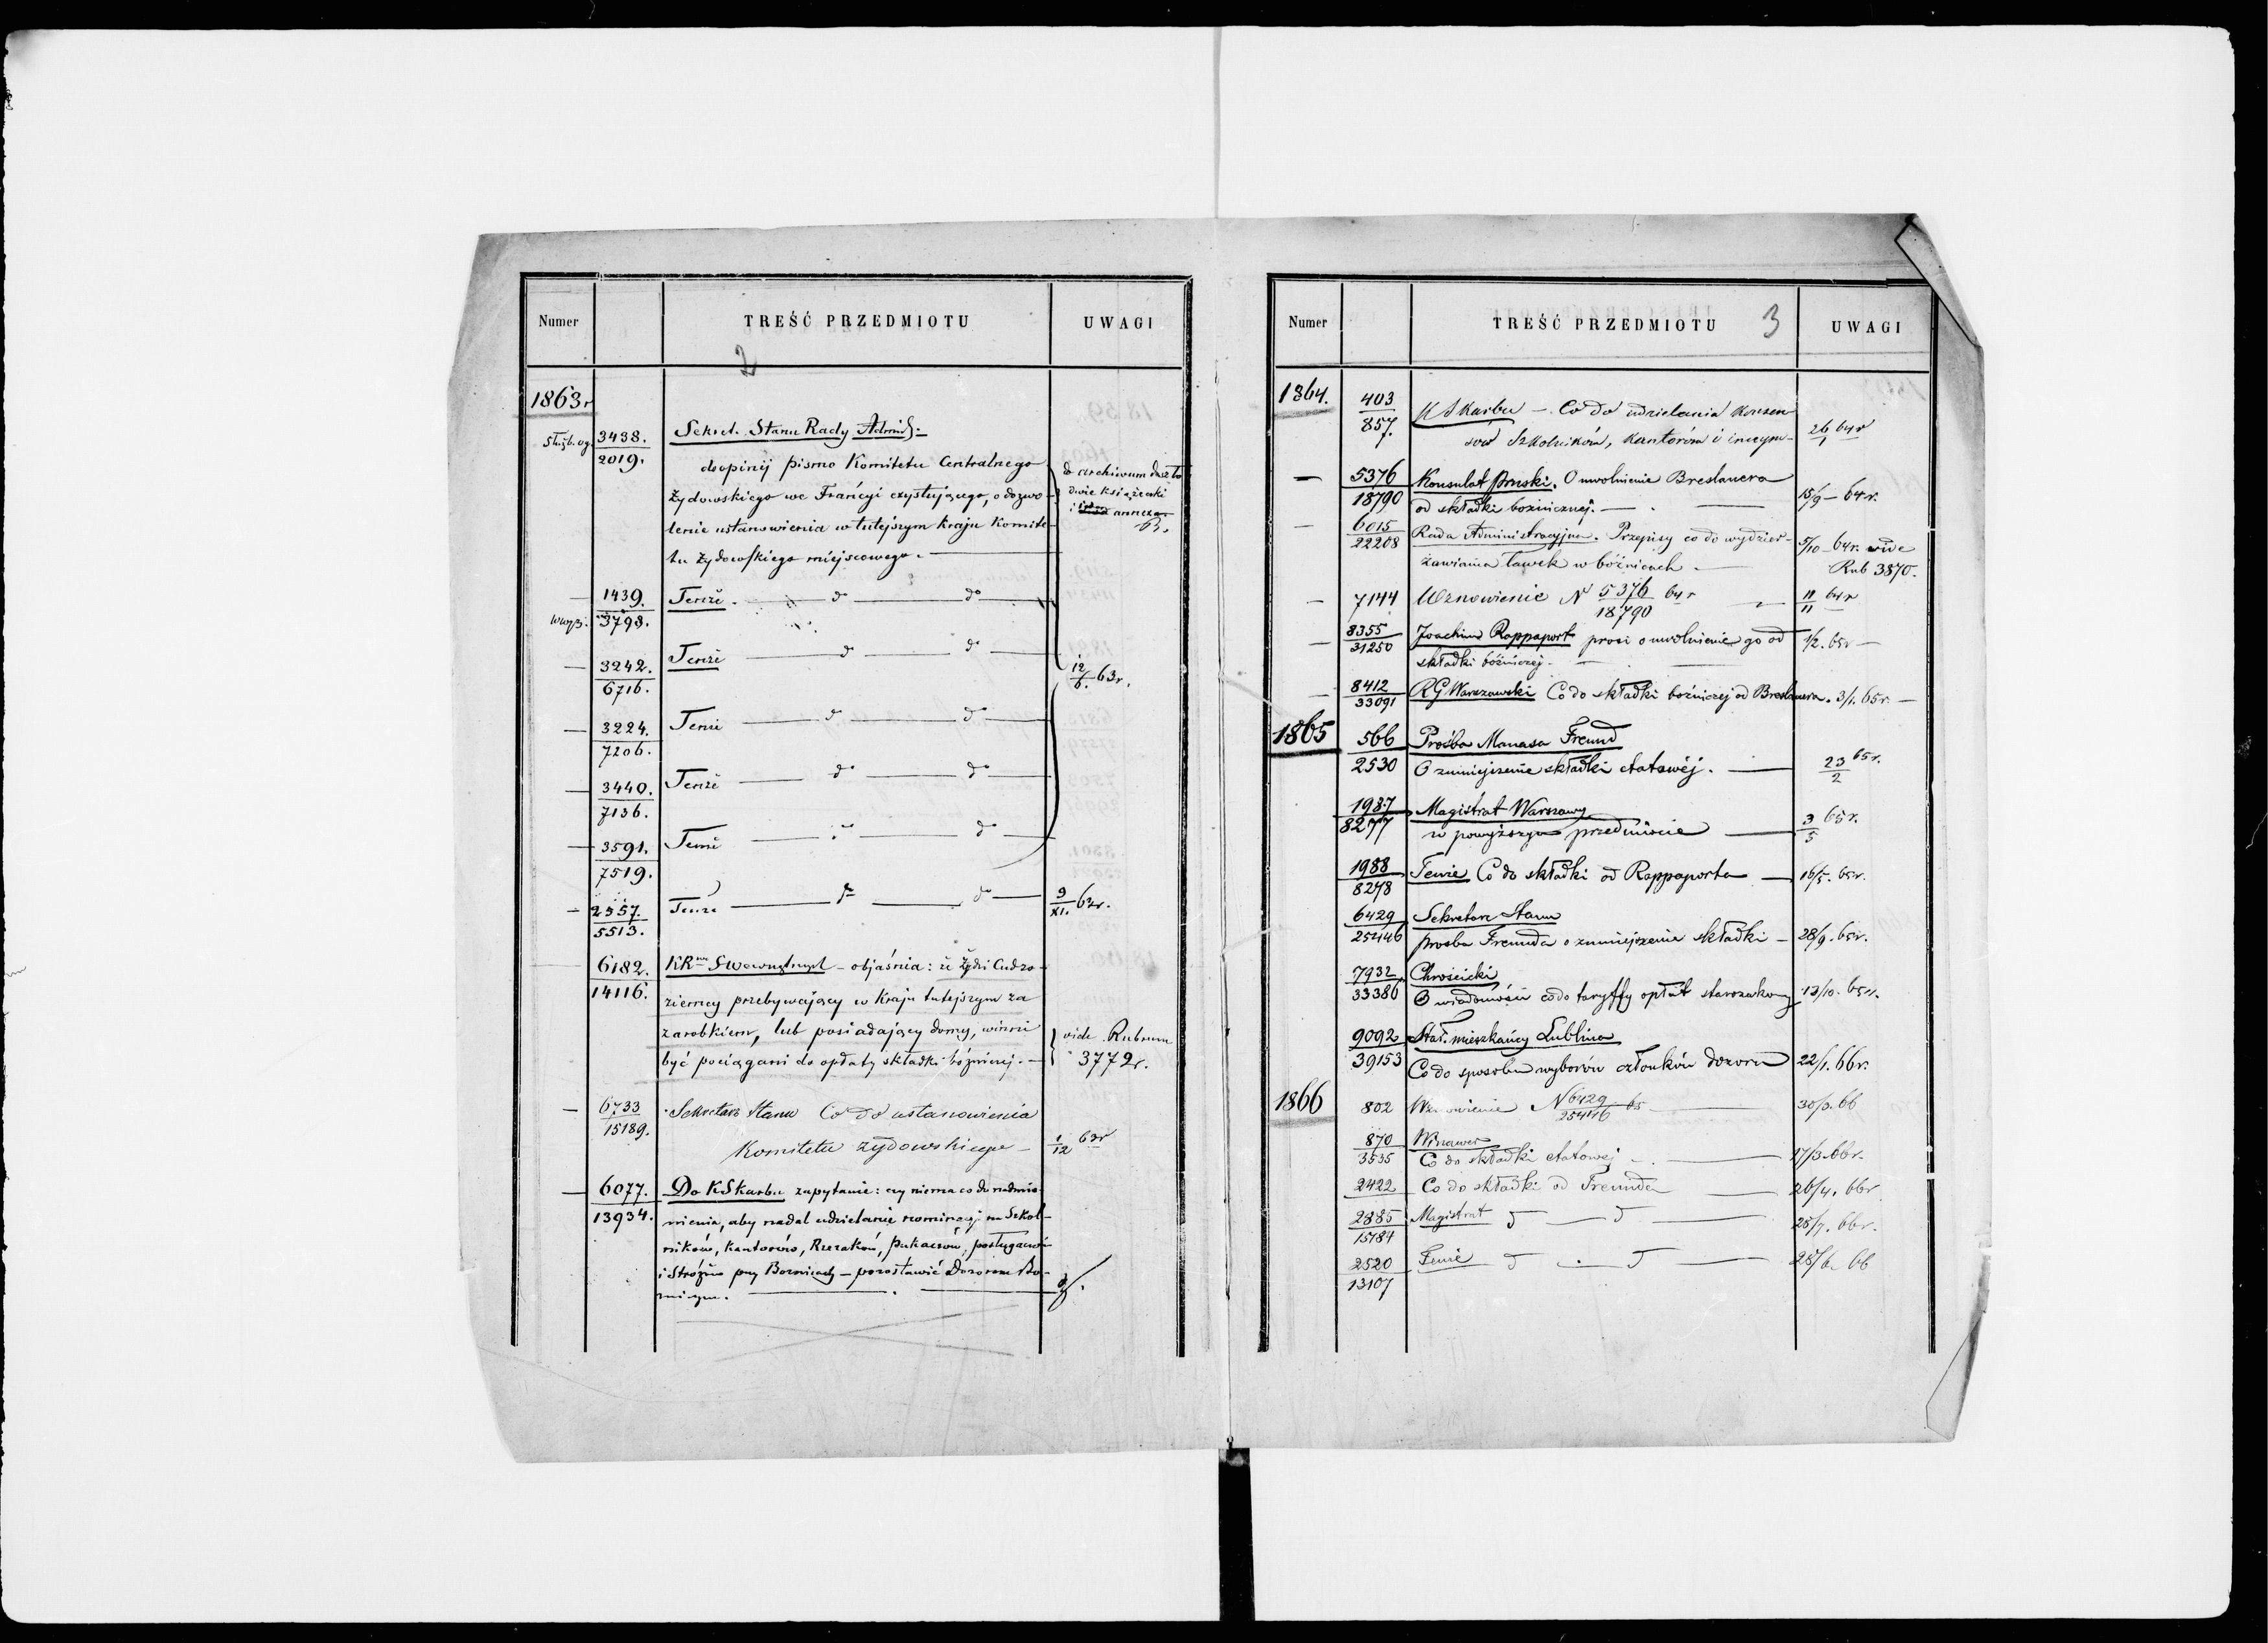 Numer TREŚĆ PRZEDMIOTU UWAGI
2
1863r
3438. Sekret. Stanu Rady Admin.
2019.
do opinij pismo Komitetu Centralnego
Żydowskiego we Francyi exystującego, o dozwo-
lenie ustanowienia w tutejszym kraju Komite-
tu Żydowskiego miejscowego.
do archiwum
dwie książeczki
i annexa
1439. Tenże do do
3798.
3242. Tenże do do
6716.
12/6. 63r.
3224. Tenże do do
7206.
3440. Tenże do do
7136.
3591. Tenże do do
7519.
2357. Tenże do do 9/XI. 63r.
5513.
6182. KR S Wewnętrznych – objaśnia: że Żydzi Cudzo-
14116. ziemcy przebywający w Kraju tutejszym za
zarobkiem, lub posiadający domy, winni
być pociągani do opłaty składki bóżniczej.
vide Rubrum
3772r.
6733 Sekretarz Stanu Co do ustanowienia
15189.
Komitetu żydowskiego – 1/12 63r
6077. Do KSkarbu zapytanie: czy niema co do nadmie-
13934. nienia, aby nadal udzielanie nominacji na Szkol-
ników, Kantorów, Rzezaków, Pukaczów, posługaczów
i Stróżów przy Boznicach – pozostawić Dozorom Bo-
zniczym.
Numer TREŚĆ PRZEDMIOTU 3 UWAGI
1864. 403 KSkarbu – Co do udzielania Konsen
857. sów Szkolników, Kantorów i innym – 26/1 64r
5376 Konsulat pruski. O uwolnienie Breslauera
18790 od składki bożnicznej. 15/9 – 64r.
6015 Rada Administracyjna. Przepisy co do wydzier-
22208 żawiania ławek w bóżnicach. 5/10 – 64r. vide
Rub 3870.
7144 Wznowienie N 5376/18790 64r 11/11 64r
8355 Joachim Rappaport prosi o uwolnienie go od 1/2. 65r –
31250 składki bóżniczej.
8412 RG Warszawski Co do składki bożniczej od Breslauera. 3/1. 65r. –
33091
1865 566 Prośba Manasa Freund
2530 O zmniejszenie składki etatowéj. 23/2 65r.
1987 Magistrat Warszawy
8277 w powyższym przedmiocie 3/5 65r.
1988 Tenże Co do składki od Rappaporta 16/5. 65r.
8278
6429 Sekretarz Stanu
25446 prosba Freunda o zmniejszenie składki – 28/9. 65r.
7932 Chrościcki
33386 O wiadomości co do taryffy opłat starozakony 13/10. 65r.
9092 Stał. mieszkańcy Lublina
39153 Co do sposobu wyborów członków dozoru 22/1. 66r.
1866 802 Wznowienie N 6429/25446 65 30/3. 66
870 Winawer
3535 Co do składki etatowej 17/3. 66r.
2422 Co do składki od Freunda 26/4. 66r
2885 Magistrat 25/7. 66r.
15784
2520 Tenże 25/6. 66
13107